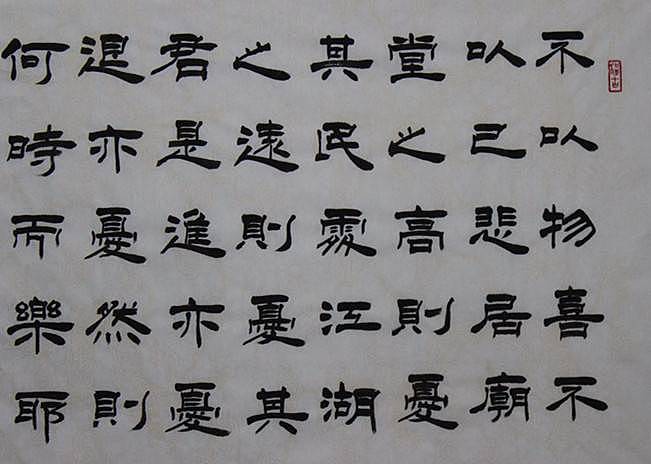 不以物喜不
以己悲居廟
堂之高則憂
其民處江湖
之遠則憂其
君是進亦憂
退亦憂然則
何時而樂耶